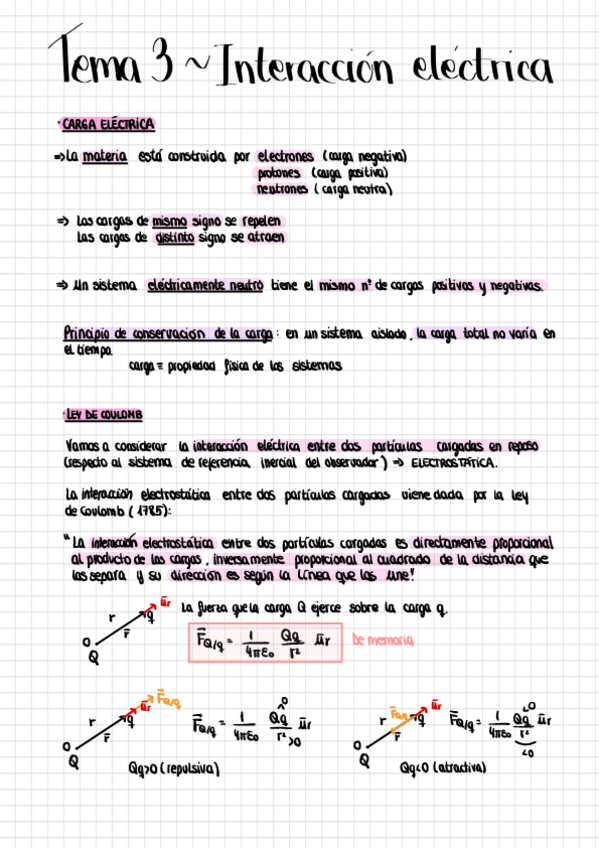 Tema 3 ~ Interacción eléctrica
· CARGA ELÉCTRICA
⇒ La materia está construida por electrones (carga negativa)
protones (carga positiva)
neutrones (carga neutra)
⇒ Las cargas de mismo signo se repelen
Las cargas de distinto signo se atraen
⇒ Un sistema eléctricamente neutro tiene el mismo nº de cargas positivas y negativas.
Principio de conservación de la carga: en un sistema aislado, la carga total no varía en
el tiempo.
carga ≡ propiedad física de los sistemas
· LEY DE COULOMB
Vamos a considerar la interacción eléctrica entre dos partículas cargadas en reposo
(respecto al sistema de referencia inercial del observador) ⇒ ELECTROSTÁTICA.
La interacción electrostática entre dos partículas cargadas viene dada por la ley
de Coulomb (1785):
"La interacción electrostática entre dos partículas cargadas es directamente proporcional
al producto de las cargas, inversamente proporcional al cuadrado de la distancia que
las separa y su dirección es según la línea que las une".
r q ūr La fuerza que la carga Q ejerce sobre la carga q.
O r̄ Q
F̄Q/q = 1/4πε₀ Qq/r² ūr De memoria
r q ūr F̄Q/q F̄Q/q = 1/4πε₀ Qq/r² ūr >0 >0
O r̄ Q
Qq>0 (repulsiva)
r F̄Q/q q ūr F̄Q/q = 1/4πε₀ Qq/r² ūr <0 <0
O r̄ Q
Qq<0 (atractiva)